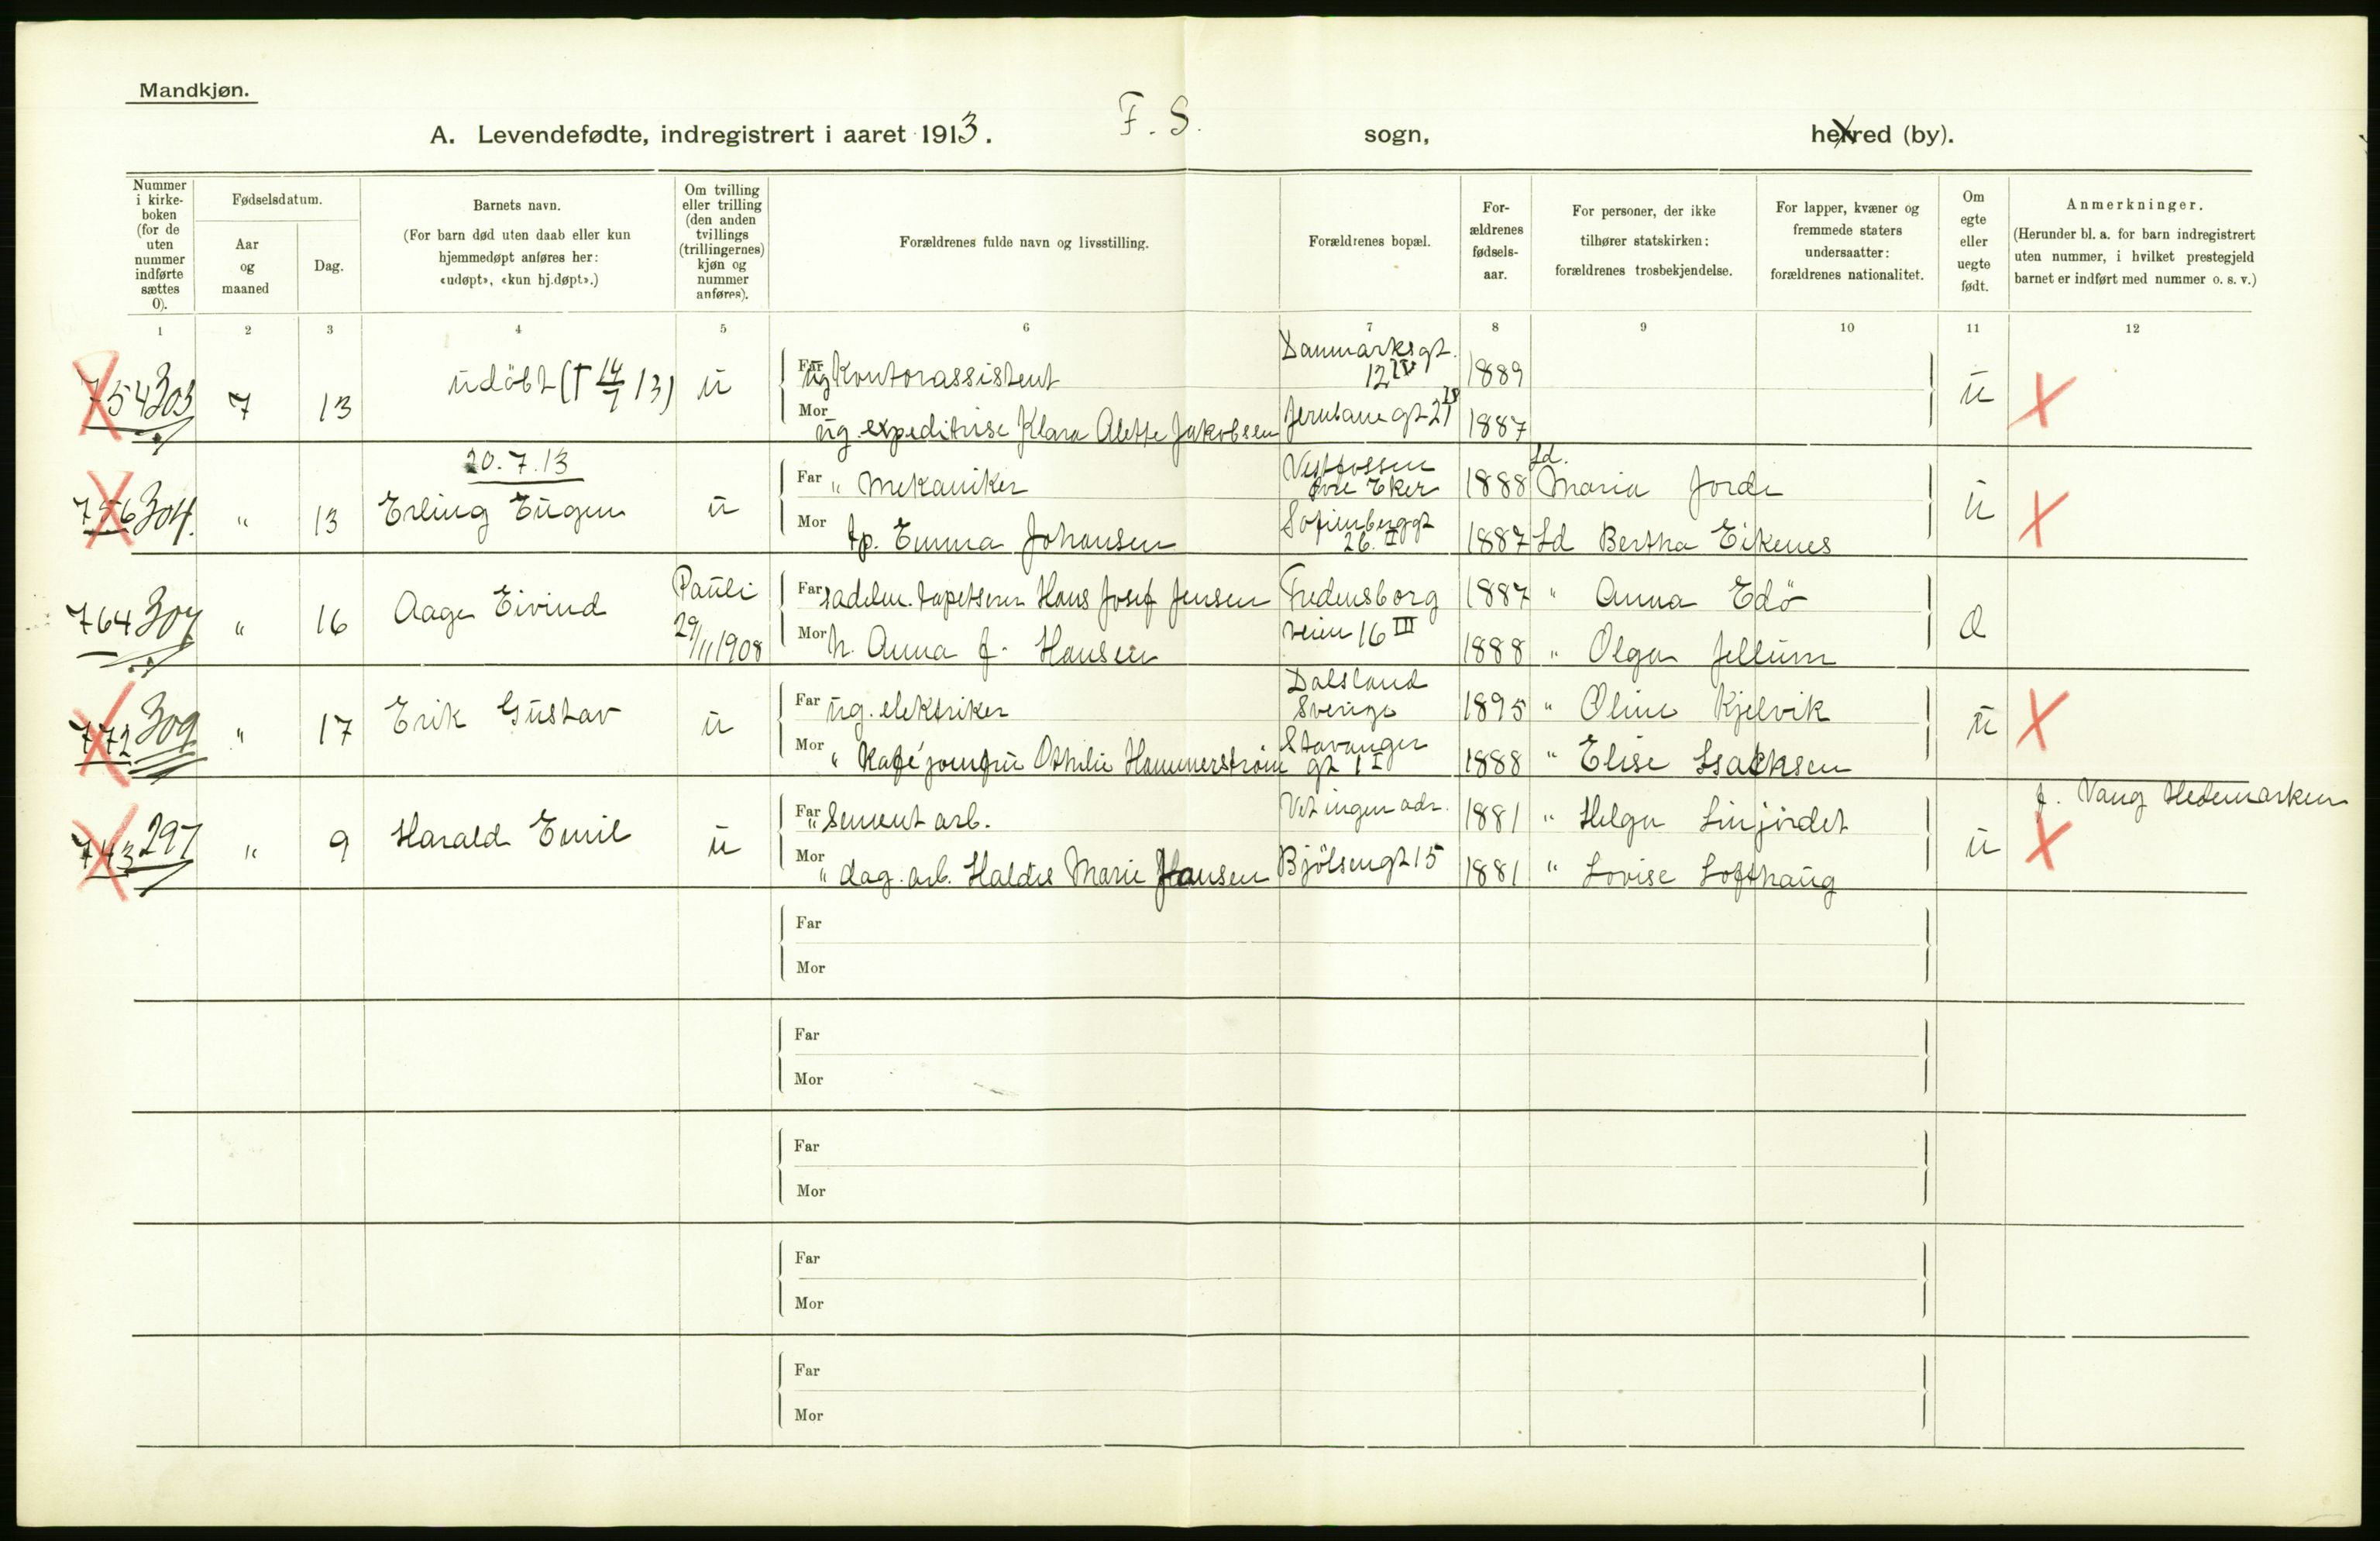 Mandkjøn.
A. Levendefødte, indregistrert i aaret 1913. F. S. sogn, herred (by).
Nummer i kirkeboken (for de uten nummer indførte sættes 0).
Fødselsdatum.
Aar og maaned
Dag.
Barnets navn.
(For barn død uten daab eller kun hjemmedøpt anføres her: «udøpt», «kun hj.døpt».)
Om tvilling eller trilling (den anden tvillings (trillingernes) kjøn og nummer anføres).
Forældrenes fulde navn og livsstilling.
Forældrenes bopæl.
Forældrenes fødselsaar.
For personer, der ikke tilhører statskirken: forældrenes trosbekjendelse.
For lapper, kvæner og fremmede staters undersaatter: forældrenes nationalitet.
Om egte eller uegte født.
Anmerkninger.
(Herunder bl. a. for barn indregistrert uten nummer, i hvilket prestegjeld barnet er indført med nummer o. s. v.)
1 2 3 4 5 6 7 8 9 10 11 12
754 303 7 13 udöbt († 14/7 13) u
Far ug Kontorassistent Danmarksgt. 12 IV 1889
Mor ug. expeditrise Klara Alette Jakobsen Jernbanegt 21 IV 1887
u
20.7.13
756 304. " 13 Erling Eugen u
Far " Mekaniker Vestfossen Øvre Eker 1888 Jd. Maria Jorde
Mor tp. Emma Johansen Sofienberggt 26. I 1887 Jd Bertha Eikenes
u
764 307 " 16 Aage Eivind Pauli 29/11 1908
Far sadelm. tapetserer Hans Josef Jensen Fredensborg 1887 " Anna Edö
Mor h. Anna J. Hansen veien 16 III 1888 " Olga Jellum
772 309 " 17 Erik Gustav u
Far ug. elektriker Dalsland Sverige 1895 " Oline Kjelvik
Mor " Kaféjomfru Othilie Hammerstrøm Stavanger gt 1 I 1888 " Elise Isachsen
u
743 297 " 9 Harald Emil u
Far " Sement arb. Vet ingen adr. 1881 " Helga Linjordet
Mor " dag. arb. Haldis Marie Hansen Bjölsengt 15 1881 " Lovise Lofthaug
u f. Vang Hedemarken
Far
Mor
Far
Mor
Far
Mor
Far
Mor
Far
Mor